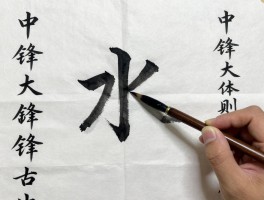 中锋大体则
水
中锋大鋒锋古